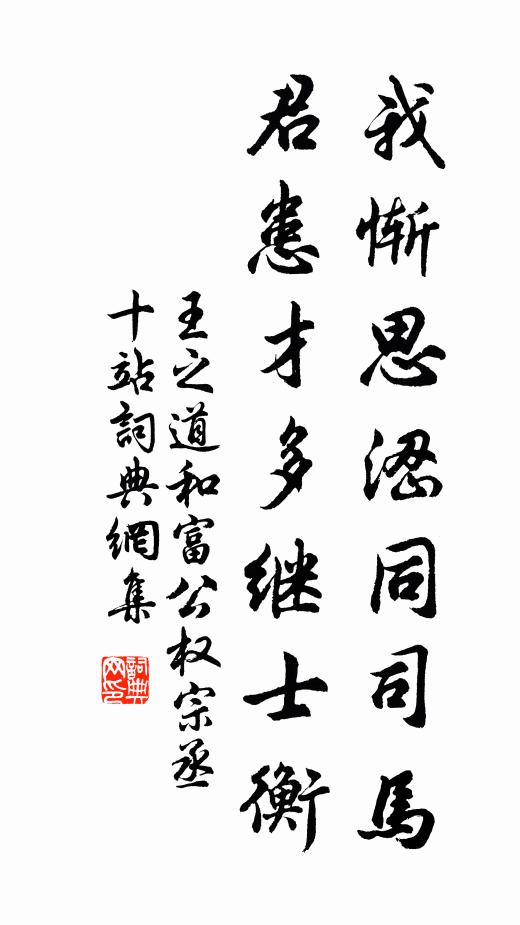 我惭思涩同司马
君患才多继士衡
王之道和富公权宗丞
十站詞典網集
詞典网印